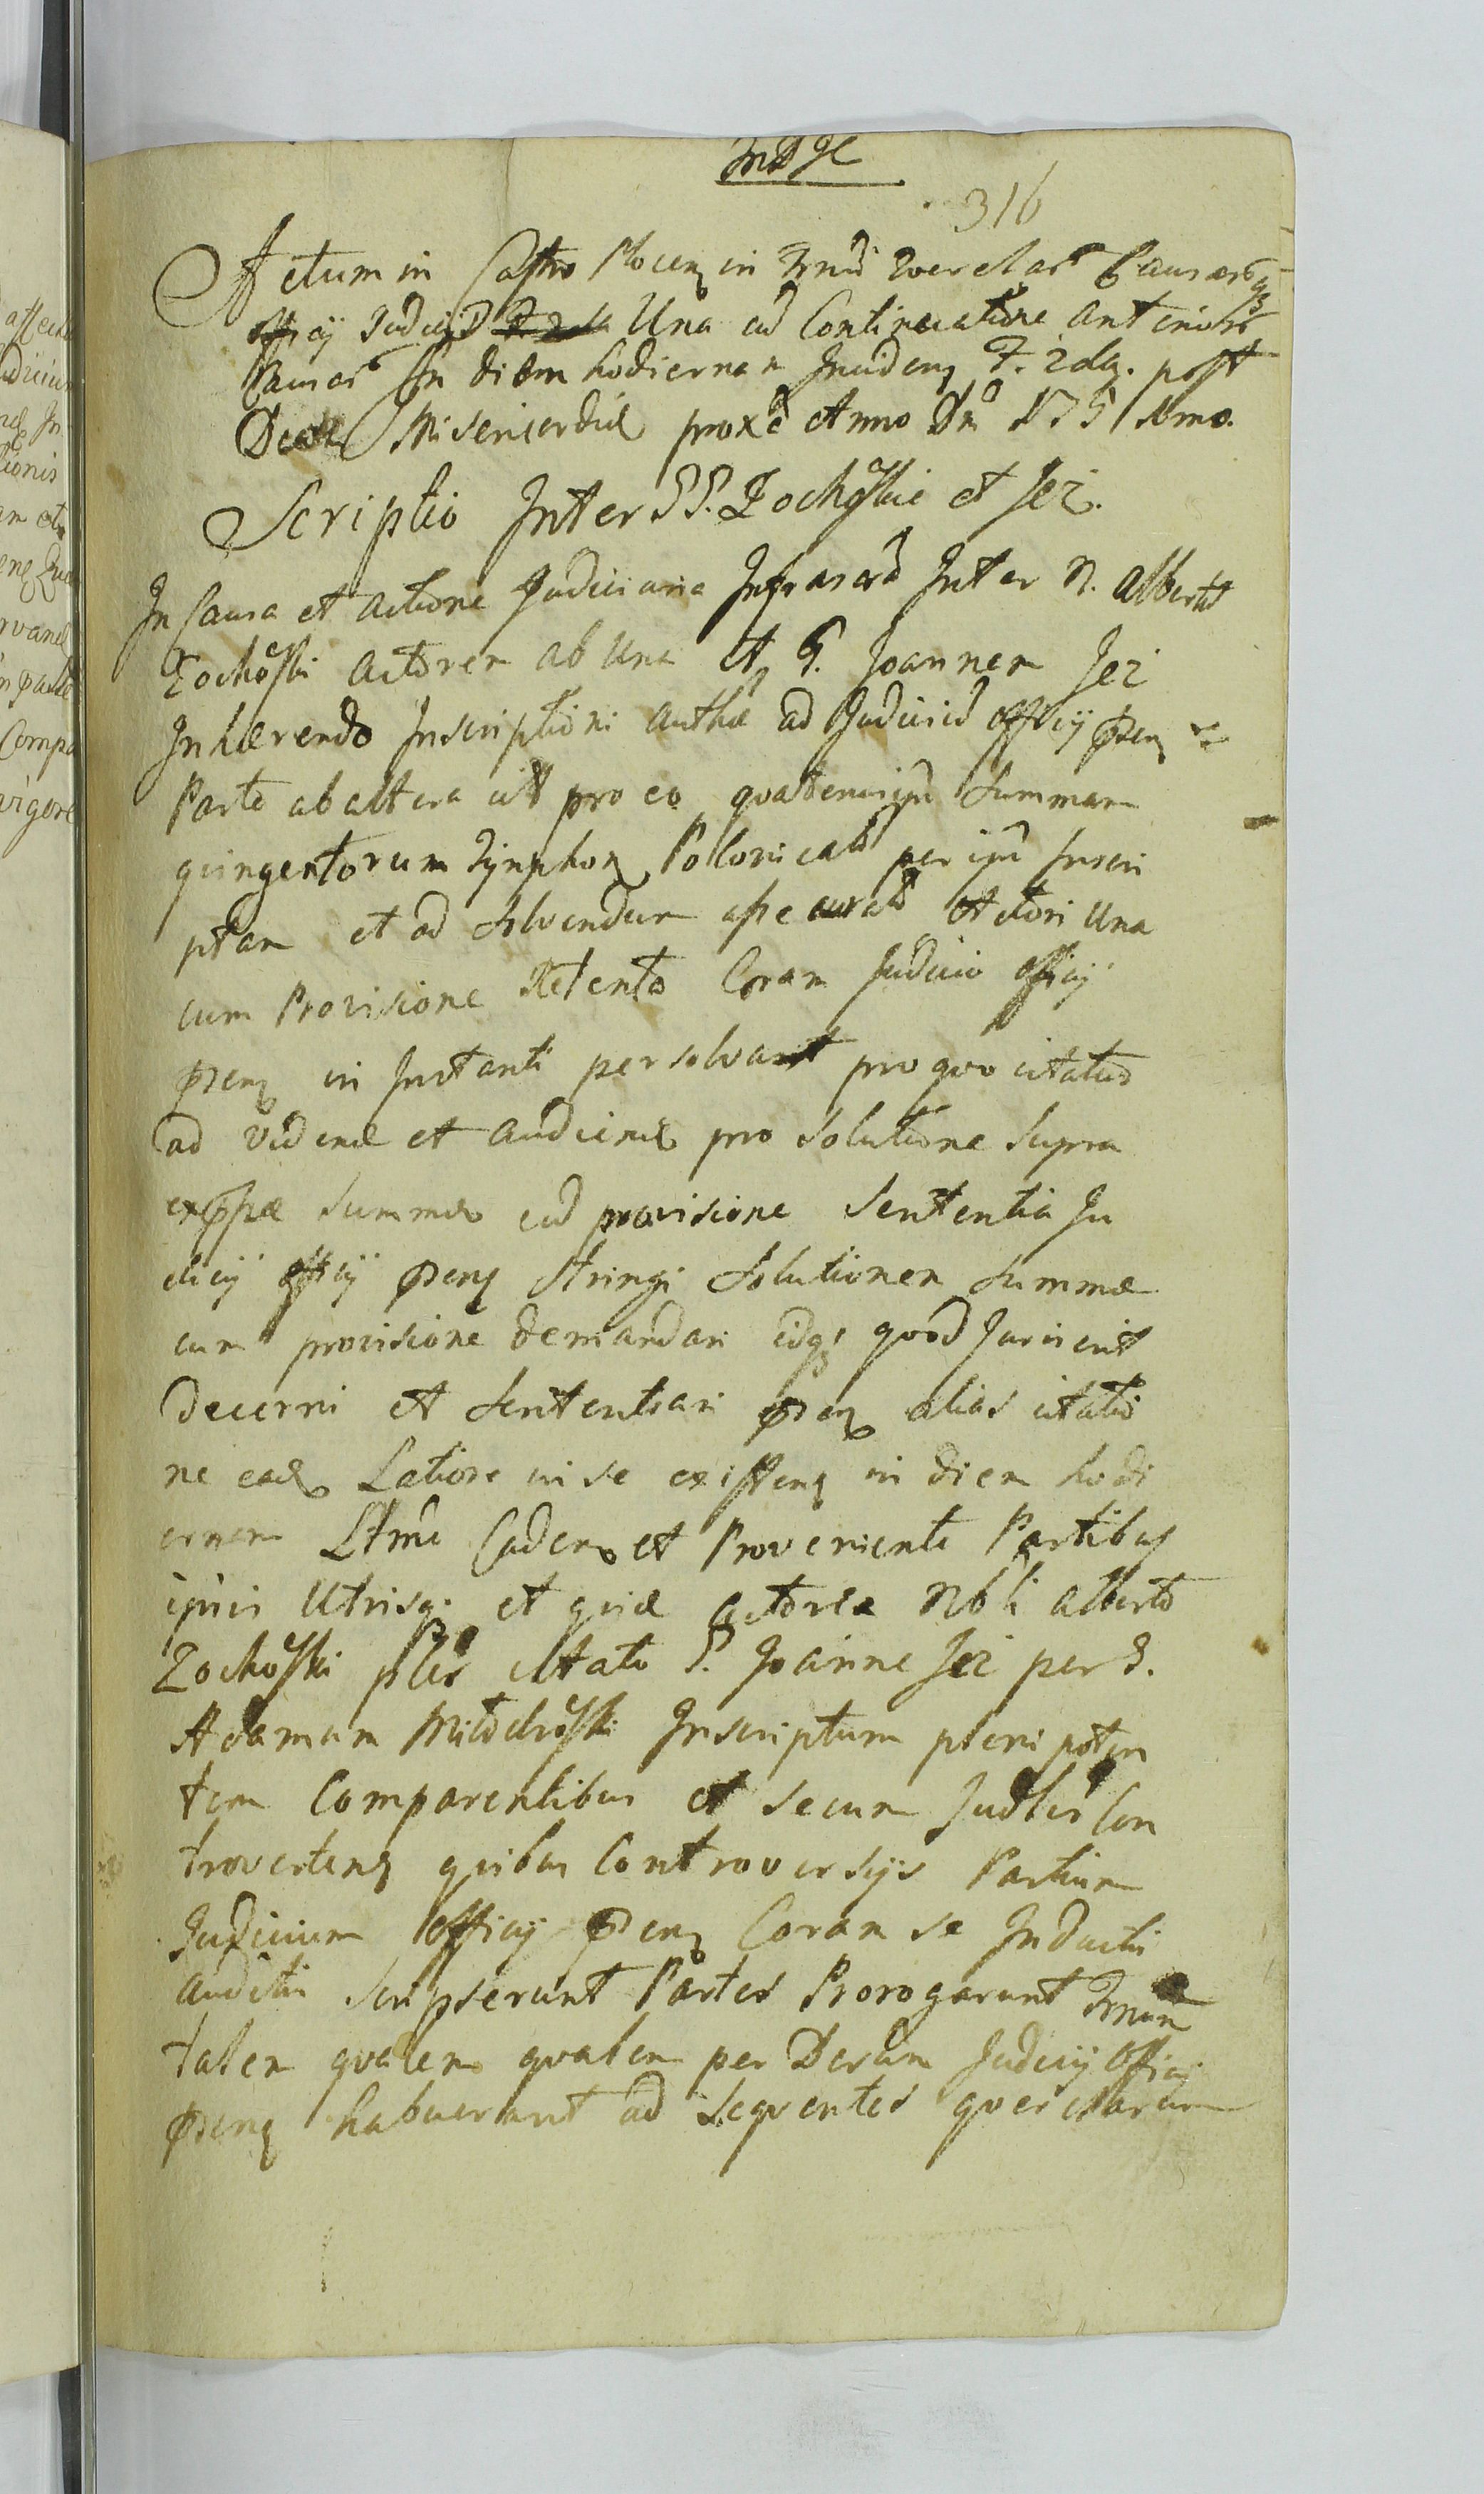 316
Actum in Castro Plocen in Querelar Causarqs
officij Judicij Una cu Continuatione anterior
Causar In diem hodiernam Inciden F. 2da. post
Dcam Misericordiæ prox Anno Dni 1751mo.
Scriptio Inter PP. Zochoski et Jez.
In Causa et actione Judiciaria Infrascr Inter N. Albertu
Zochoski Actorem ab Una et G. Joannem Jez
Inhærendo Inscriptioni authæ ad Judiciu officij pñen
Parte ab altera citt pro eo quatenus ipse Summam
quingentorum Tynphon Polonicaliu per ipm Inscri
ptam et ad solvendum Actori Una
cum Provisione Retenta Coram Judicio officij
pñen in Instanti persolvant pro quo citatus
ad videnđ et audienđ pro solutione supra
summæ cu provisione Sententia Ju
dicij officij pñen stringi Solutionem summæ
cum provisione demandari idq; quod Juris erit
decerni et Sententiari pñen alias citatio
ne eađ Latiore in se existen in diem hodi
ernam Caden et Proveniente Partibus
ipsis Utrisq; et quidæ actorea Nbli Alberto
Zochoski citato P. Joanne Jez per G.
Adamum Inscriptum plenipoten
tem Comparentibus et secum Judlr Con
troverten quibus Controversijs Partium
Judicium officij pñen Coram se Inductis
auditis scripserunt Partes Prorogarunt Trnum
talem qualem qualem per Decrum Judicij officij
pñen habuerunt ad sequentes querelarum